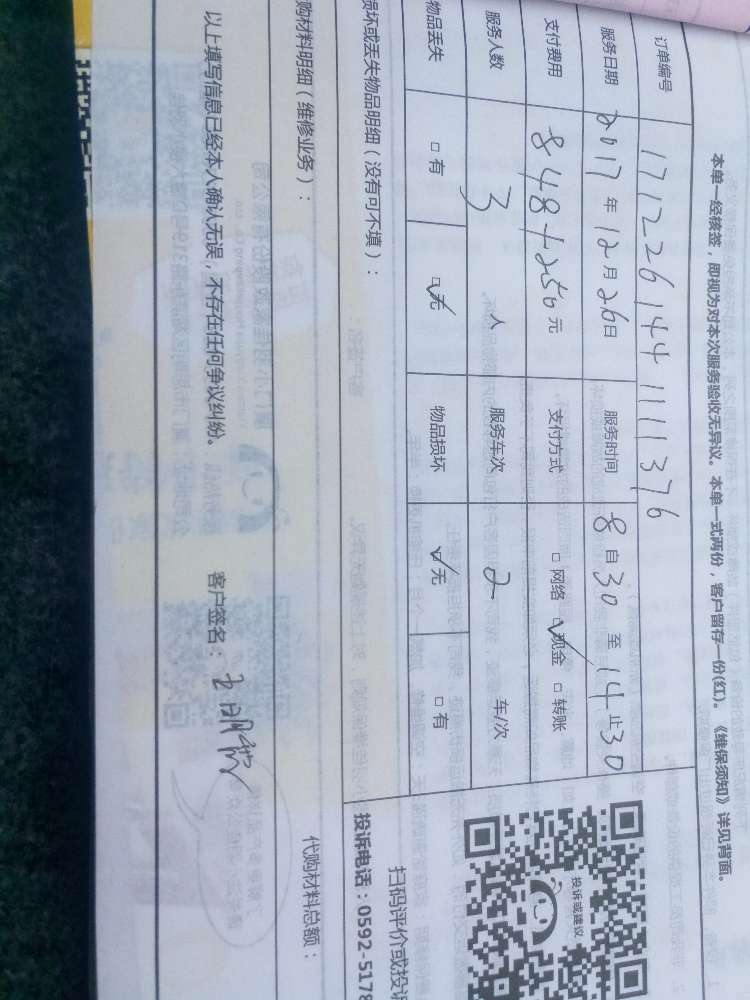 本单一经核签，即视为对本次服务验收无异议。本单一式两份，客户留存一份(红)。《维保须知》详见背面。
订单编号 17122614411111376
服务日期 2017年12月26日 服务时间 8自30至14止30
支付费用 848+250元 支付方式 □网络 ☑现金 □转账
服务人数 3人 服务车次 2 车/次
物品丢失 □有 ☑无 物品损坏 ☑无 □有
损坏或丢失物品明细（没有可不填）：
购材料明细（维修业务）：
代购材料总额：
以上填写信息已经本人确认无误，不存在任何争议纠纷。 客户签名：
投诉或建议
扫码评价或投诉
投诉电话：0592-5178